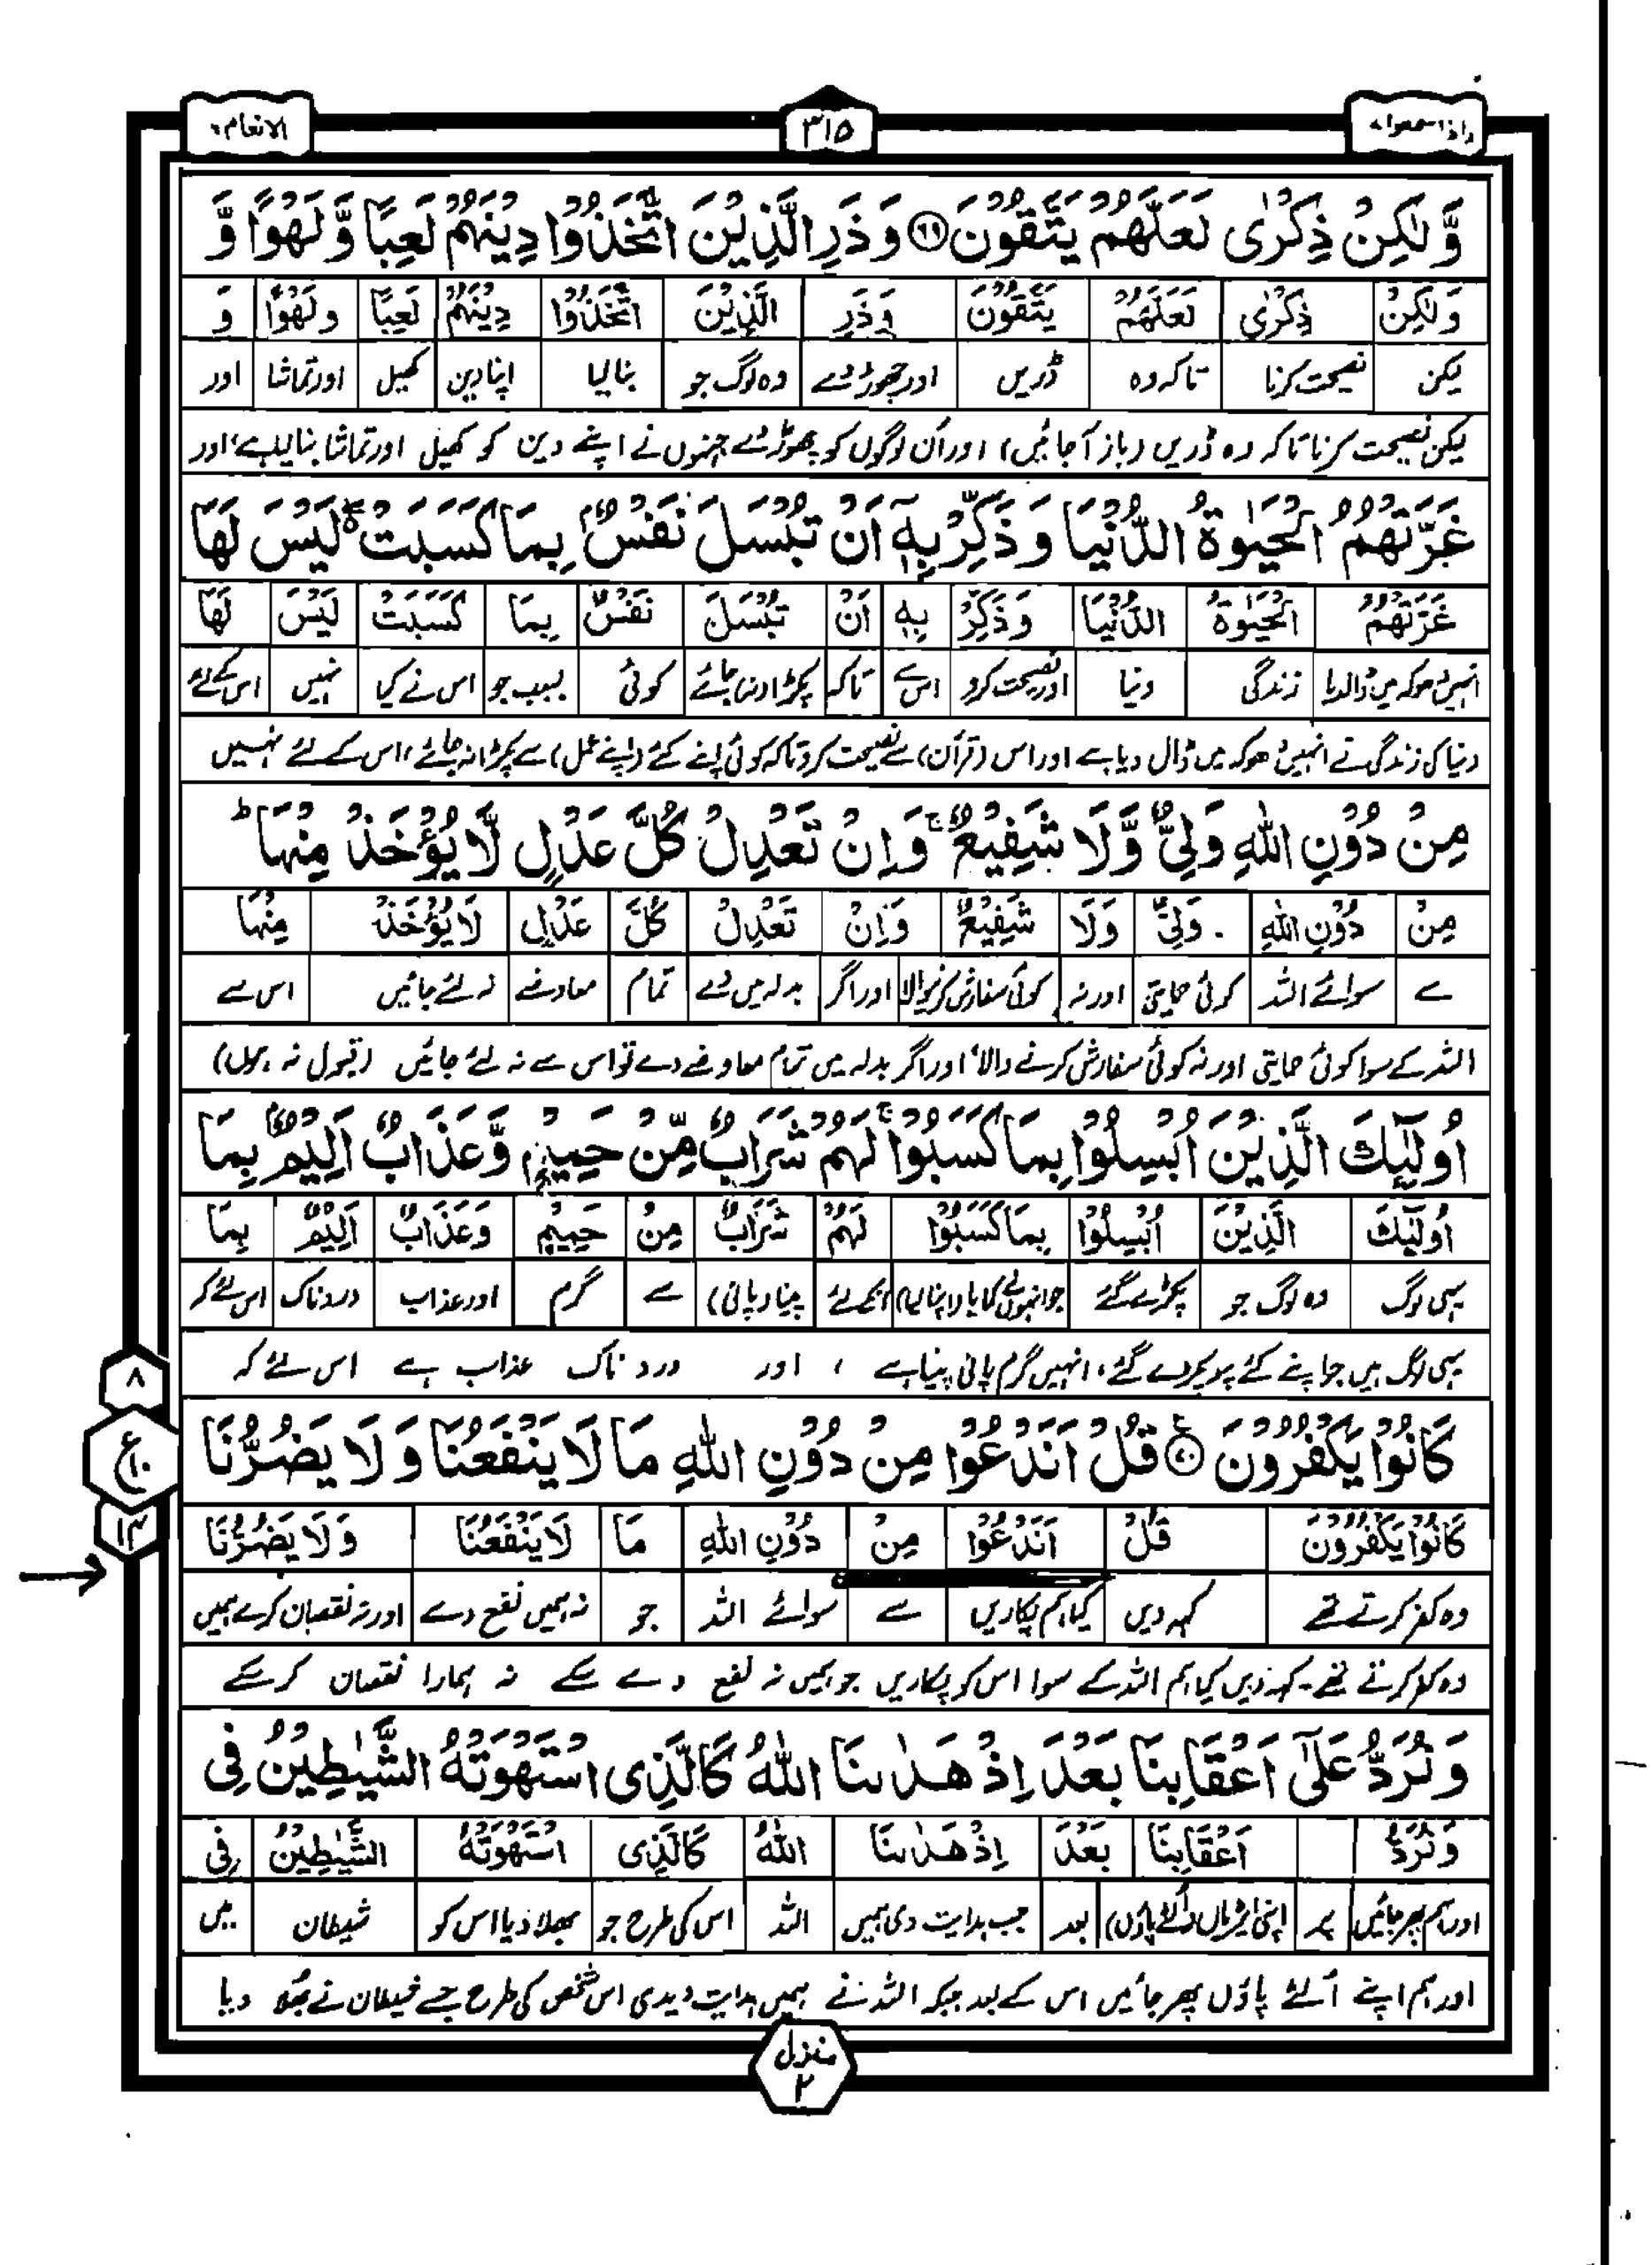 واذا سمعوا ۷
۳۱۵
الانعام ۶
وَّلٰكِنْ ذِكْرٰى لَعَلَّهُمْ يَتَّقُوْنَ ۶۹ وَذَرِ الَّذِيْنَ اتَّخَذُوْا دِيْنَهُمْ لَعِبًا وَّلَهْوًا وَّ
وَلٰكِنْ ذِكْرٰى لَعَلَّهُمْ يَتَّقُوْنَ وَذَرِ الَّذِيْنَ اتَّخَذُوْا دِيْنَهُمْ لَعِبًا وَلَهْوًا وَ
لیکن نصیحت کرنا تاکہ وہ ڈریں اور چھوڑ دے وہ لوگ جو بنا لیا اپنا دین کھیل اور تماشا اور
لیکن نصیحت کرنا تاکہ وہ ڈریں (باز آ جائیں) اور اُن لوگوں کو چھوڑ دے جنہوں نے اپنے دین کو کھیل اور تماشا بنا لیا ہے، اور
غَرَّتْهُمُ الْحَيٰوةُ الدُّنْيَا وَذَكِّرْ بِهٖٓ اَنْ تُبْسَلَ نَفْسٌۢ بِمَا كَسَبَتْ ۖ لَيْسَ لَهَا
غَرَّتْهُمُ الْحَيٰوةُ الدُّنْيَا وَذَكِّرْ بِهٖ اَنْ تُبْسَلَ نَفْسٌ بِمَا كَسَبَتْ لَيْسَ لَهَا
انہیں دھوکہ میں ڈالدیا زندگی دنیا اور نصیحت کرو اس سے تاکہ پکڑا نہ جائے کوئی بسبب جو اس نے کیا نہیں اس کے لئے
دنیا کی زندگی نے انہیں دھوکہ میں ڈال دیا ہے اور اس (قرآن) سے نصیحت کرو تاکہ کوئی اپنے کئے (اپنے عمل) سے پکڑا نہ جائے، اس کے لئے نہیں
مِنْ دُوْنِ اللهِ وَلِيٌّ وَّلَا شَفِيْعٌ ۚ وَاِنْ تَعْدِلْ كُلَّ عَدْلٍ لَّا يُؤْخَذْ مِنْهَا ؕ
مِنْ دُوْنِ اللهِ وَلِيٌّ وَلَا شَفِيْعٌ وَاِنْ تَعْدِلْ كُلَّ عَدْلٍ لَا يُؤْخَذْ مِنْهَا
سے سوائے اللہ کوئی حمایتی اور نہ کوئی سفارش کرنیوالا اور اگر بدلہ میں دے تمام معاوضے نہ لئے جائیں اس سے
اللہ کے سوا کوئی حمایتی اور نہ کوئی سفارش کرنے والا، اور اگر بدلہ میں تمام معاوضے دے تو اس سے نہ لئے جائیں (قبول نہ ہوں)
اُولٰٓئِكَ الَّذِيْنَ اُبْسِلُوْا بِمَا كَسَبُوْا ۚ لَهُمْ شَرَابٌ مِّنْ حَمِيْمٍ وَّعَذَابٌ اَلِيْمٌۢ بِمَا
اُولٰٓئِكَ الَّذِيْنَ اُبْسِلُوْا بِمَا كَسَبُوْا لَهُمْ شَرَابٌ مِنْ حَمِيْمٍ وَعَذَابٌ اَلِيْمٌ بِمَا
یہی لوگ وہ لوگ جو پکڑے گئے جو انہوں نے کمایا (اپنا کیا) انکے لئے پینا (پانی) سے گرم اور عذاب دردناک اس لئے کہ
یہی لوگ ہیں جو اپنے کئے پر پکڑے گئے، انہیں گرم پانی پینا ہے ، اور دردناک عذاب ہے اس لئے کہ
۸
كَانُوْا يَكْفُرُوْنَ ۷۰ قُلْ اَنَدْعُوْا مِنْ دُوْنِ اللهِ مَا لَا يَنْفَعُنَا وَلَا يَضُرُّنَا
ع ۱۰
كَانُوْا يَكْفُرُوْنَ قُلْ اَنَدْعُوْا مِنْ دُوْنِ اللهِ مَا لَا يَنْفَعُنَا وَلَا يَضُرُّنَا
۱۴
وہ کفر کرتے تھے کہہ دیں کیا ہم پکاریں سے سوائے اللہ جو نہ ہمیں نفع دے اور نہ نقصان کرے ہمیں
وہ کفر کرتے تھے۔ کہہ دیں کیا ہم اللہ کے سوا اس کو پکاریں جو ہمیں نہ نفع دے سکے نہ ہمارا نقصان کر سکے
وَنُرَدُّ عَلٰٓى اَعْقَابِنَا بَعْدَ اِذْ هَدٰىنَا اللهُ كَالَّذِى اسْتَهْوَتْهُ الشَّيٰطِيْنُ فِى
وَنُرَدُّ اَعْقَابِنَا بَعْدَ اِذْ هَدٰىنَا اللهُ كَالَّذِى اسْتَهْوَتْهُ الشَّيٰطِيْنُ فِى
اور ہم پھر جائیں پر اپنی ایڑیاں (الٹے پاؤں) بعد جب ہدایت دی ہمیں اللہ اس کی طرح جو بھلا دیا اس کو شیطان میں
اور ہم اپنے اُلٹے پاؤں پھر جائیں اس کے بعد جبکہ اللہ نے ہمیں ہدایت دیدی اس شخص کی طرح جسے شیطان نے بھلا دیا
منزل ۲